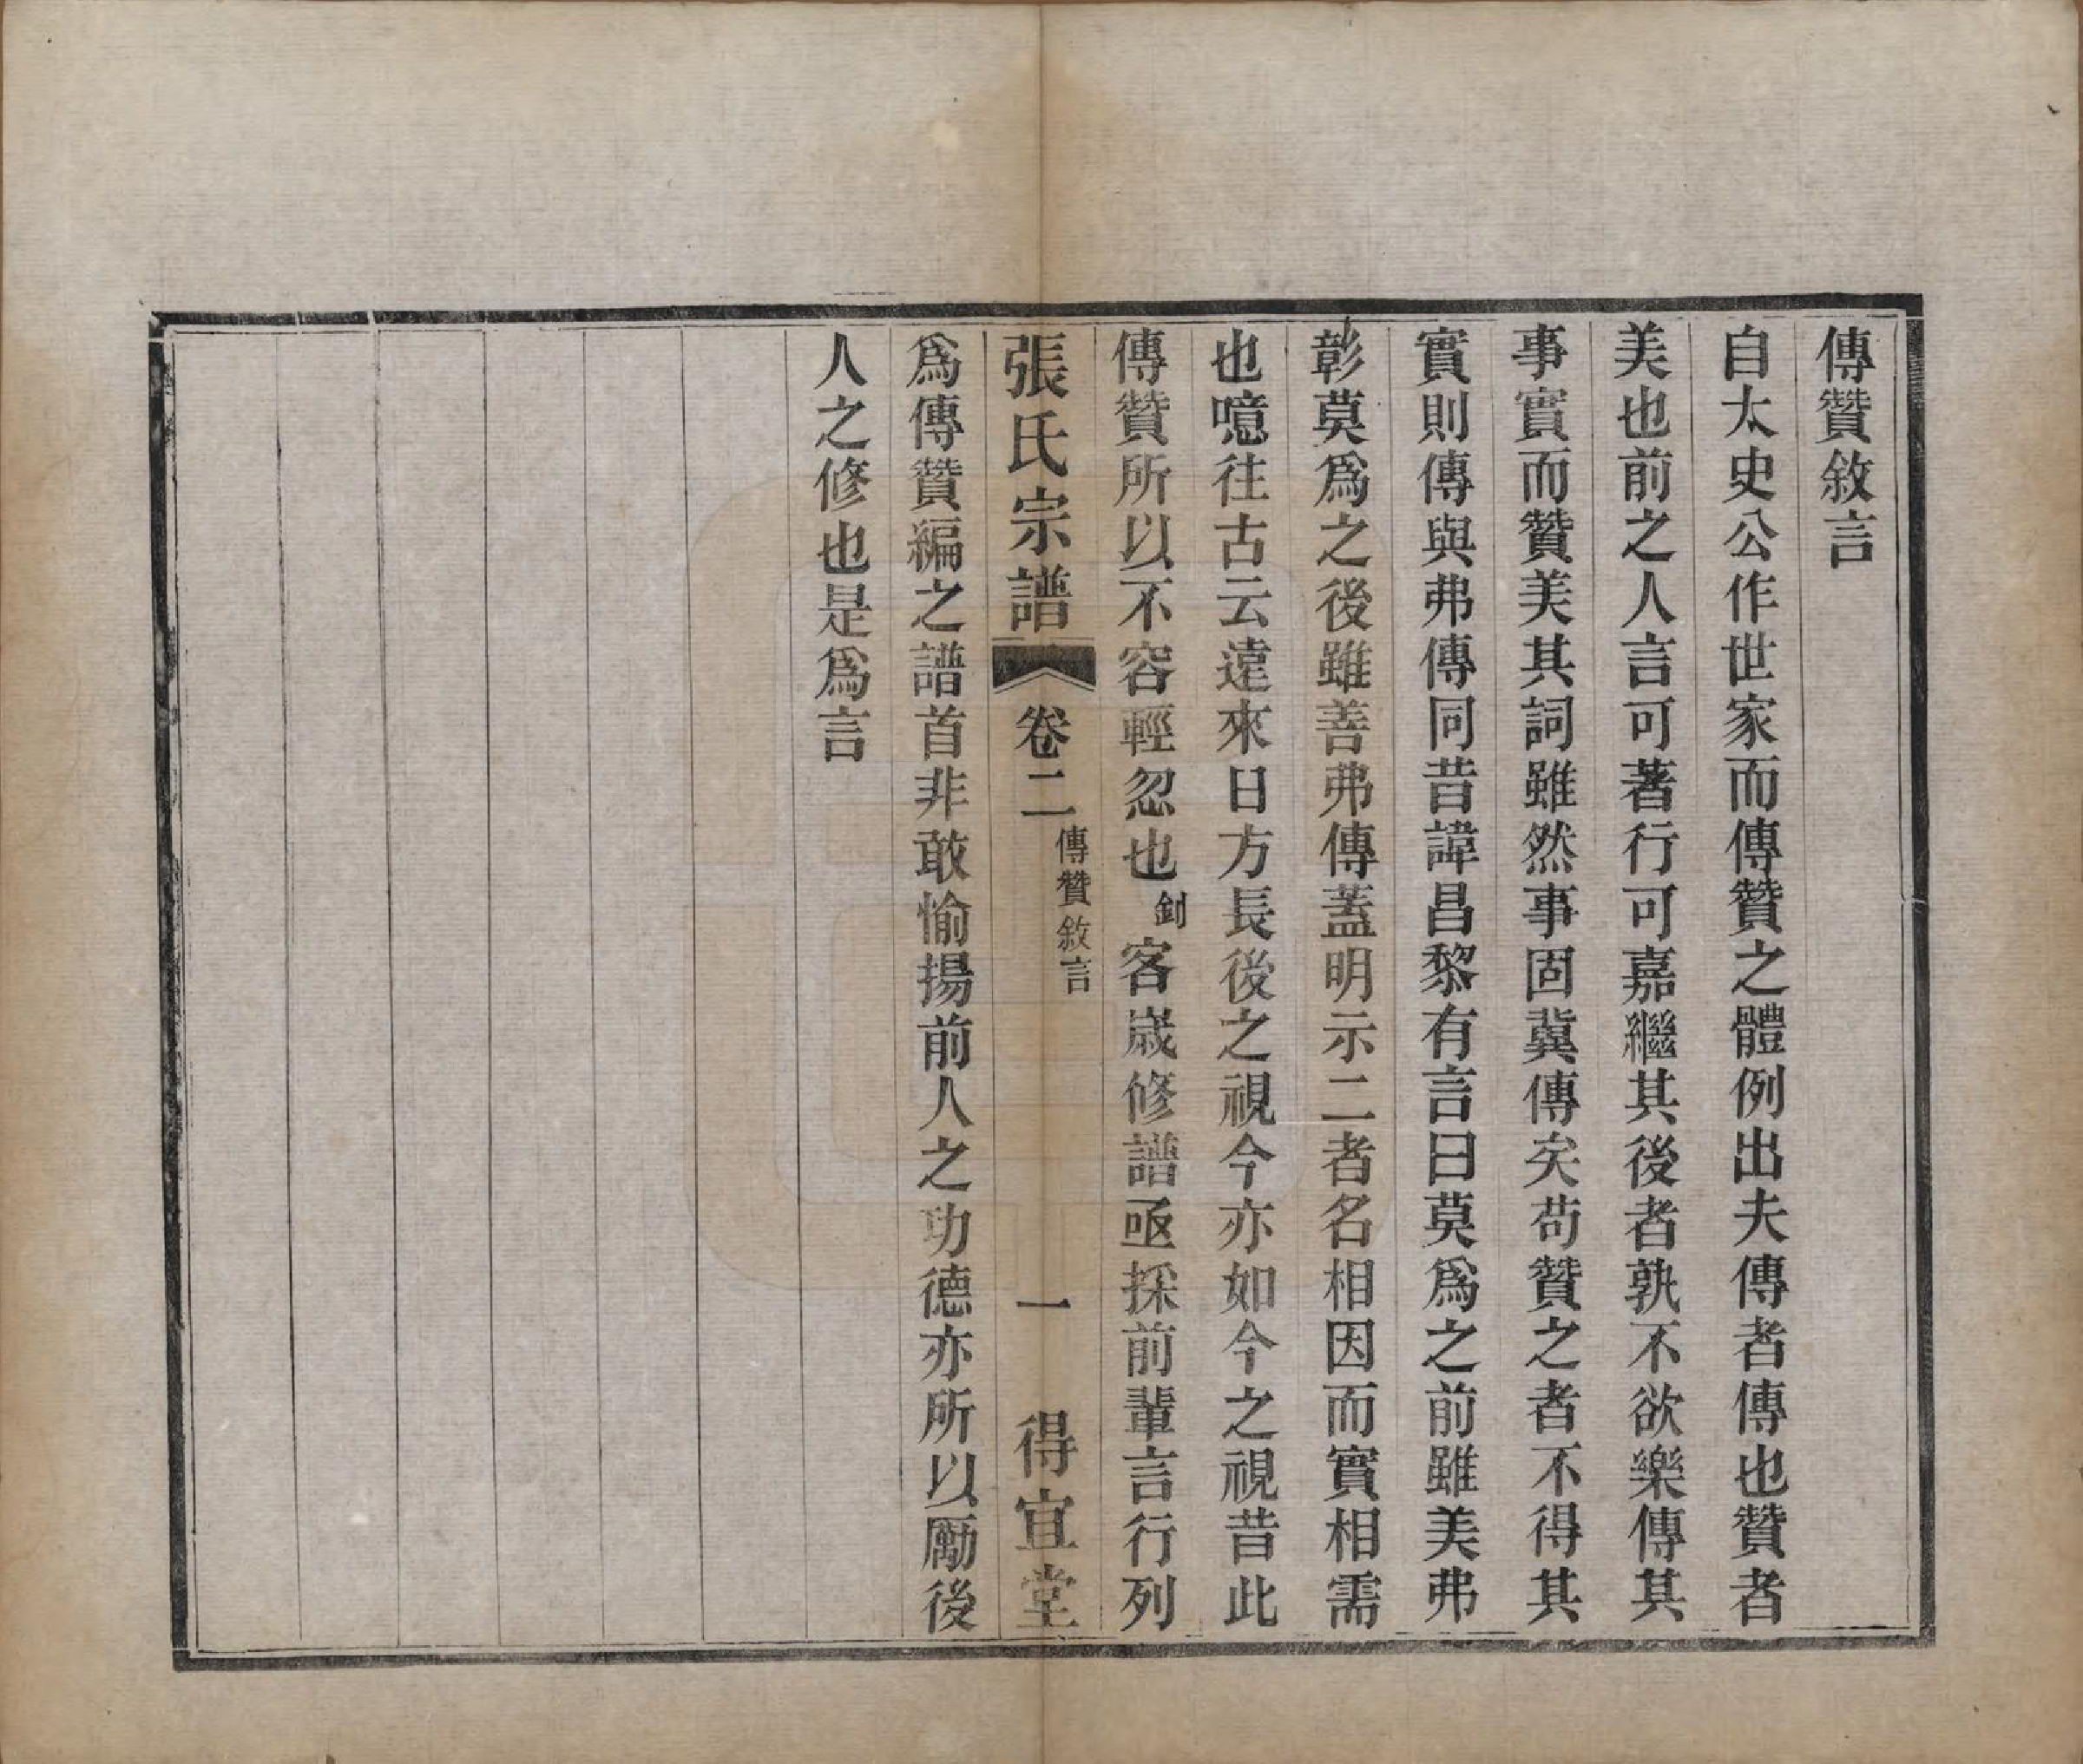 傳贊敘言
自太史公作世家而傳贊之體例出夫傳者傳也贊者
美也前之人言可著行可嘉繼其後者孰不欲樂傳其
事實而贊美其詞雖然事固冀傳矣苟贊之者不得其
實則傳與弗傳同昔諱昌黎有言曰莫爲之前雖美弗
彰莫爲之後雖善弗傳蓋明示二者名相因而實相需
也噫往古云遠來日方長後之視今亦如今之視昔此
傳贊所以不容輕忽也釗客歲修譜亟採前輩言行列
張氏宗譜 卷二 傳贊敘言 一 得宜堂
爲傳贊編之譜首非敢愉揚前人之功德亦所以勵後
人之修也是爲言